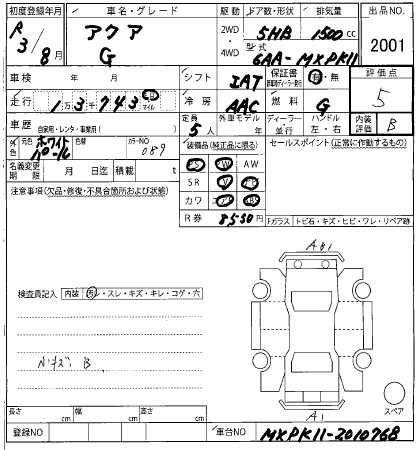 初度登録年月 車名・グレード 駆動 ドア数・形状 排気量 出品NO.
R3/8月 アクア G 2WD・4WD 5HB 1500cc 2001
型式 6AA-MXPK11
車検 年 月 シフト IAT 保証書 有・無 評価点 5
走行 1万3千743 km マイル 冷房 AAC 燃料 G
車歴 自家用・レンタ・事業用( ) 定員 5人 外車モデル 年 ディーラー・並行 ハンドル 左・右 内装評価 B
外色 元色 ホワイトパール 色替 カラーNO 089 装備品(純正品に限る) セールスポイント(正常に作動するもの)
PS PW AW
名義変更期限 月 日迄 積載 t SR
注意事項(欠品・修復・不具合箇所および状態) カワ
R券 8550円 Fガラス トビ石・キズ・ヒビ・ワレ・リペア跡
A81
検査員記入 内装 汚レ・スレ・キズ・キレ・コゲ・穴
B
スペア
A1
長さ cm 幅 cm 高さ cm
登録NO 車台NO MXPK11-2010768